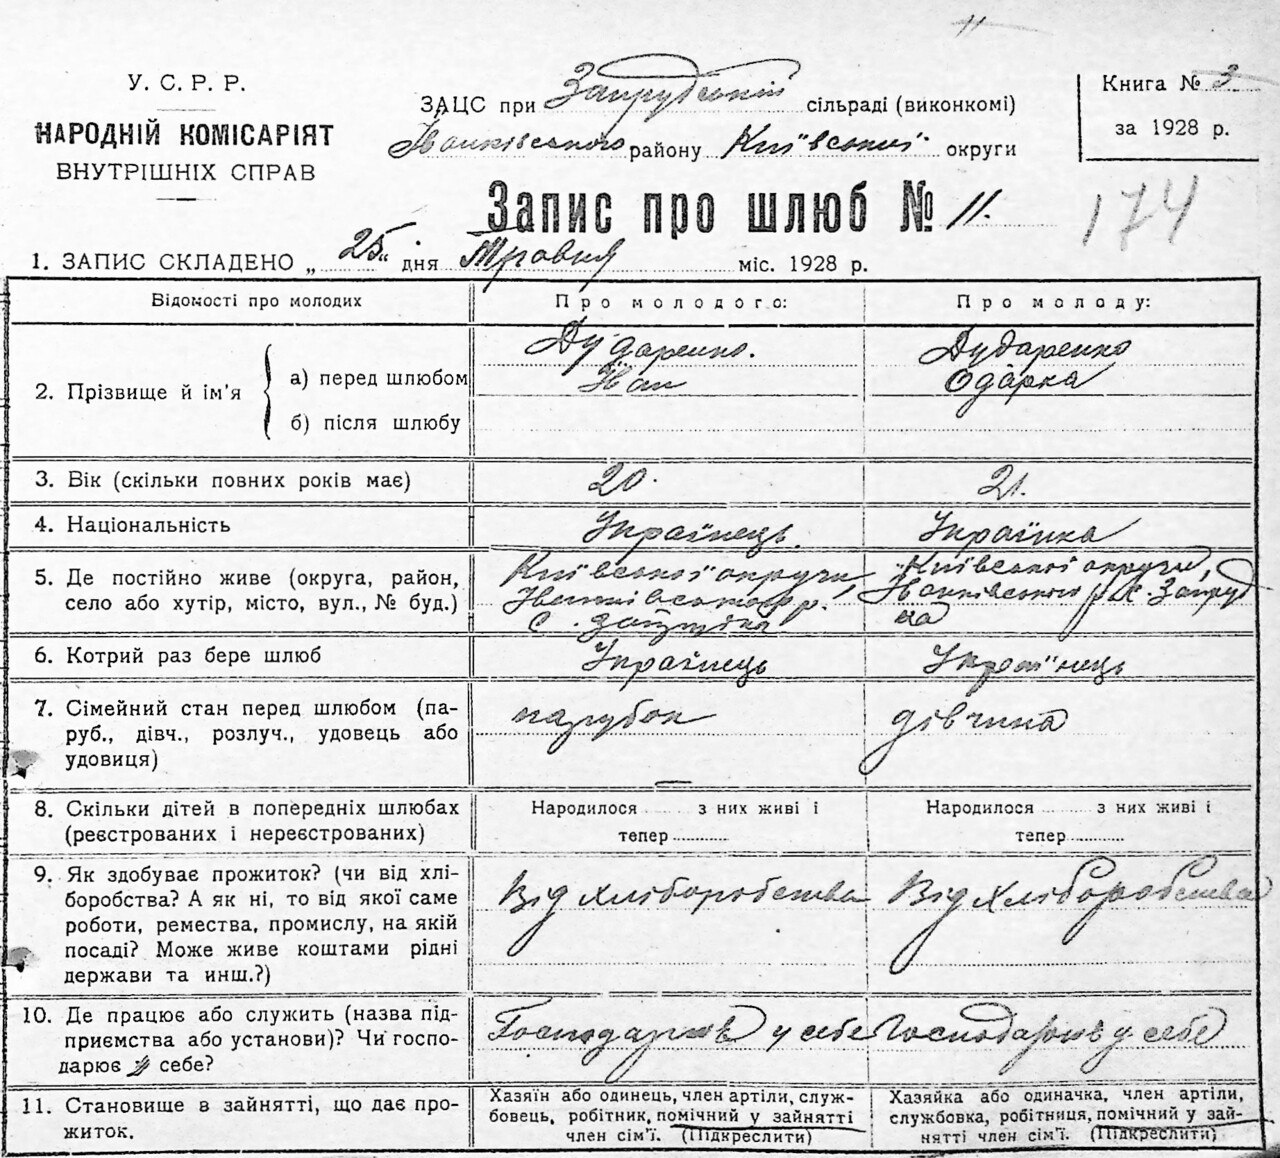 11
У. С. Р. Р.
НАРОДНІЙ КОМІСАРІЯТ
ВНУТРІШНІХ СПРАВ
ЗАЦС при Запрудській сільраді (виконкомі)
Іванківського району Київської округи
Книга № 3
за 1928 р.
Запис про шлюб № 11.
174
1. ЗАПИС СКЛАДЕНО „ 25 " дня Травня міс. 1928 р.
Відомості про молодих
Про молодого:
Про молоду:
2. Прізвище й ім'я
а) перед шлюбом
б) після шлюбу
Дударенко.
Іван
Дударенко
Одарка
3. Вік (скільки повних років має)
20.
21.
4. Національність
Українець.
Українка
5. Де постійно живе (округа, район,
село або хутір, місто, вул., № буд.)
Київської округи,
Іванківського р.
с. Запрудка
Київської округи,
Іванківського р. с. Запруд
ка
6. Котрий раз бере шлюб
Українець
Українець
7. Сімейний стан перед шлюбом (па-
руб., дівч., розлуч., удовець або
удовиця)
парубок
дівчина
8. Скільки дітей в попередніх шлюбах
(реєстрованих і нереєстрованих)
Народилося ........ з них живі і
тепер ..........
Народилося ........ з них живі і
тепер ..........
9. Як здобуває прожиток? (чи від хлі-
боробства? А як ні, то від якої саме
роботи, ремества, промислу, на якій
посаді? Може живе коштами рідні
держави та инш.?)
Від хліборобства
Від хліборобства
10. Де працює або служить (назва під-
приємства або установи)? Чи госпо-
дарює у себе?
Господарює у себе
Господарює у себе
11. Становище в зайнятті, що дає про-
житок.
Хазяїн або одинець, член артілі, служ-
бовець, робітник, помічний у зайнятті
член сім'ї. (Підкреслити)
Хазяйка або одиначка, член артілі,
службовка, робітниця, помічний у зай-
нятті член сім'ї. (Підкреслити)